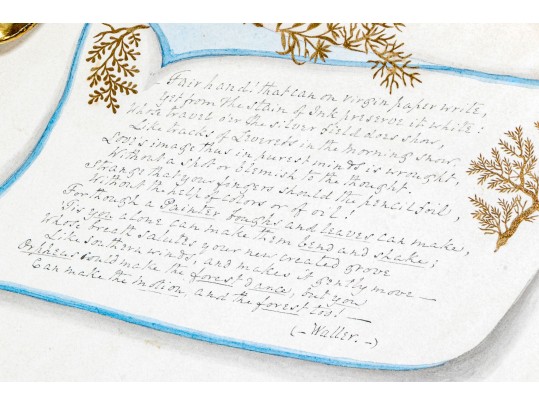 Fair hand! that can on virgin paper write,
Yet from the stain of Ink preserve it white;
Whose travel o'er the silver field does show,
Like tracks of Leverets in the morning snow,
Love's image thus in purest minds is wrought,
Without a spot or blemish to the thought.
Strange that you fingers should the pencil foil,
Without the help of colors or of oil!
For though a Painter boughs and leaves can make,
'Tis you alone can make them bend and shake;
Whose breath salutes your new created grove
Like southern winds, and makes it gently move —
Orpheus could make the forest dance, but you
Can make the motion, and the forest too! —
(— Waller. —)